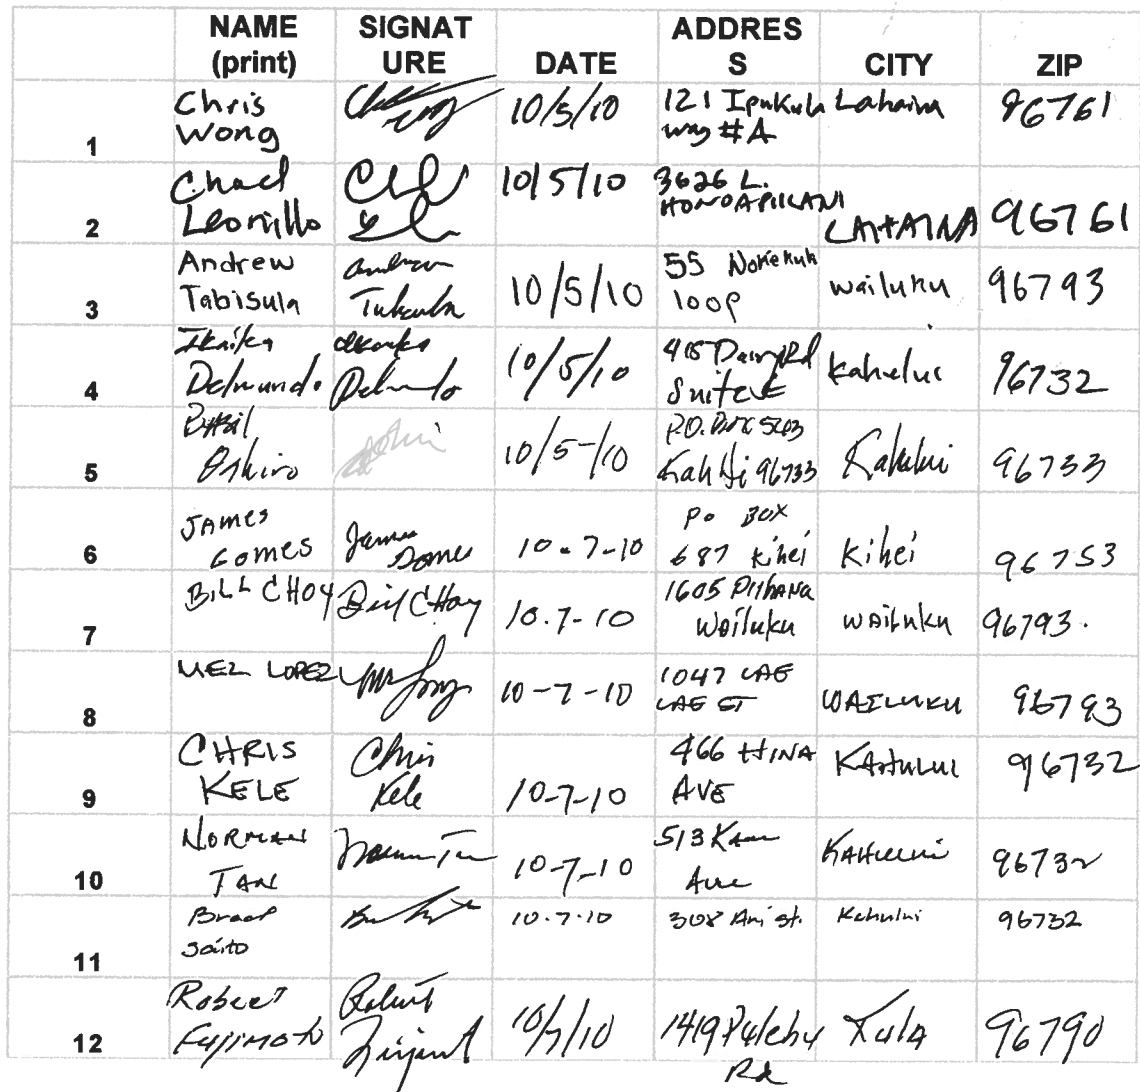 NAME (print) SIGNATURE DATE ADDRESS CITY ZIP
1 Chris Wong 10/5/10 121 Ipukula way #A Lahaina 96761
2 Chad 10/5/10 3626 L. HONOAPIILANI LAHAINA 96761
3 Andrew Tabisula 10/5/10 55 loop wailuku 96793
4 Ikaika Delmundo 10/5/10 Dairy Rd Suite E Kahului 96732
5 Oshiro 10/5/10 P.O. Box 96733 Kahului 96733
6 JAMES GOMES James Gomes 10-7-10 PO BOX 687 Kihei Kihei 96753
7 BILL CHOY Bill Choy 10-7-10 1605 PIIHANA Wailuku WAILUKU 96793
8 MEL LOPEZ 10-7-10 1047 LAE LAE ST WAILUKU 96793
9 CHRIS KELE Chris Kele 10-7-10 466 HINA AVE KAHULUI 96732
10 NORMAN TAN Norman Tan 10-7-10 513 Kam Ave KAHULUI 96732
11 Saito 10-7-10 308 st. Kahului 96732
12 Robert Fujimoto Robert 10/7/10 1419 Pulehu Rd Kula 96790